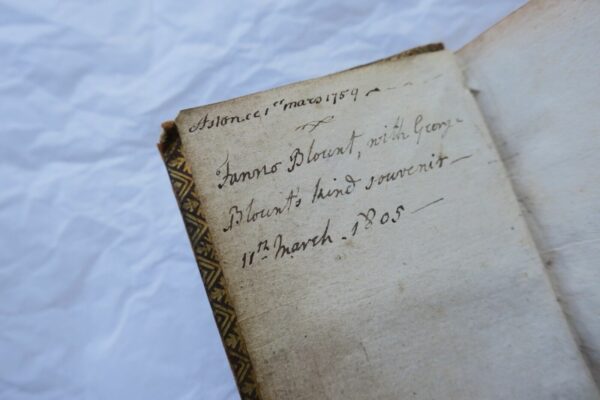 Aston, ce 1er mars 1759
Fanno Blount, with Georg-
Blount's kind souvenir —
11th March. 1805 —